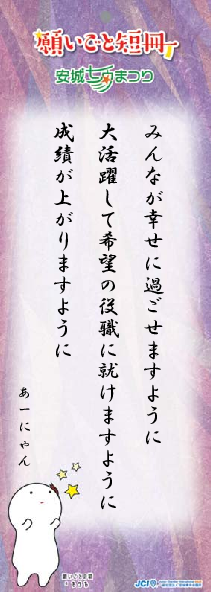 願いごと短冊
安城七夕まつり
みんなが幸せに過ごせますように
大活躍して希望の役職に就けますように
成績が上がりますように
あーにゃん
願いごと短冊
JCI